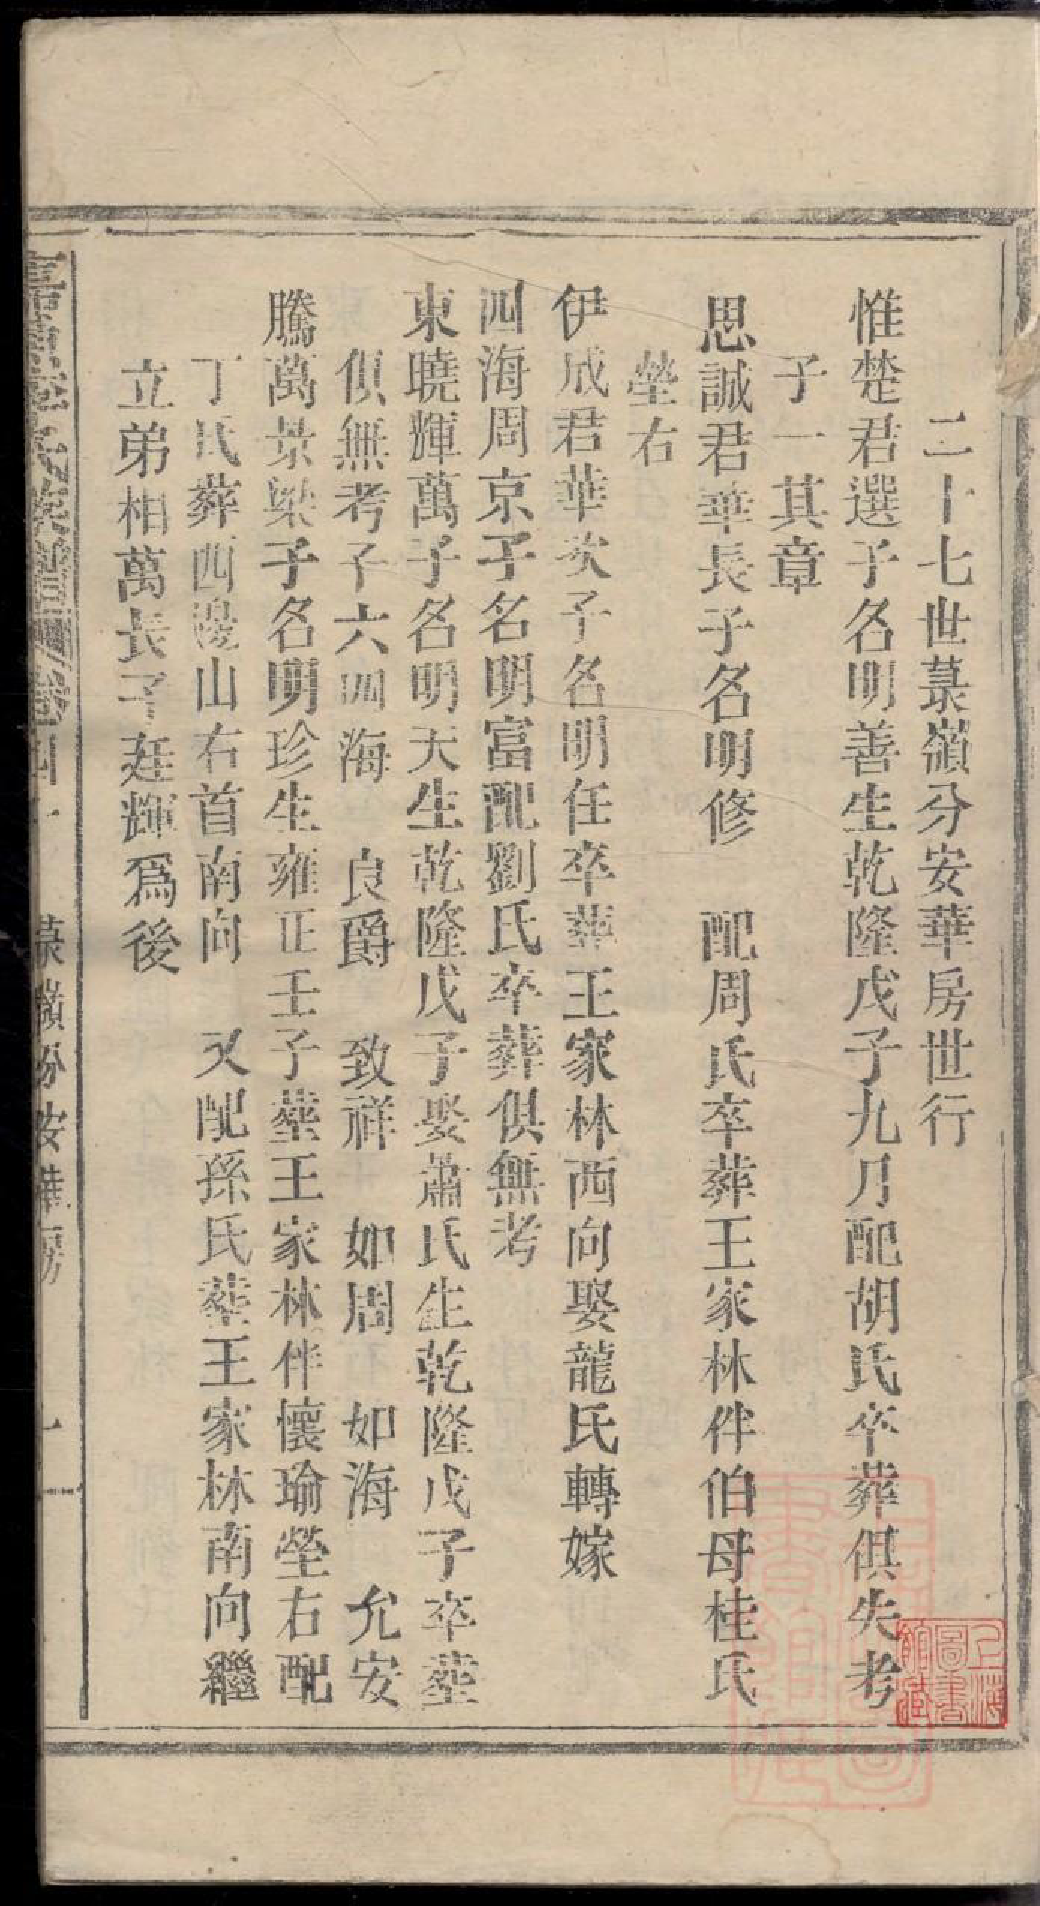 二十七世菉嶺分安華房世行
惟楚君選子名明善生乾隆戊子九月配胡氏卒葬俱失考
子一其章
思誠君華長子名明修　配周氏卒葬王家林伴伯母桂氏
塋右
伊成君華次子名明任卒葬王家林西向娶龍氏轉嫁
四海周京子名明富配劉氏卒葬俱無考
東曉輝萬子名明天生乾隆戊子娶蕭氏生乾隆戊子卒塟
俱無考子六四海　良爵　致祥　如周　如海　允安
騰萬景梁子名明珍生雍正壬子塟王家林伴懷瑜塋右配
丁氏葬西邊山右首南向　又配孫氏塟王家林南向繼
立弟相萬長子廷輝爲後
氏族譜 卷四十 菉嶺分安華房
上海圖書館藏